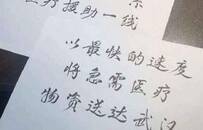 医疗援助一线
以最快的速度
将急需医疗
物资送达武汉